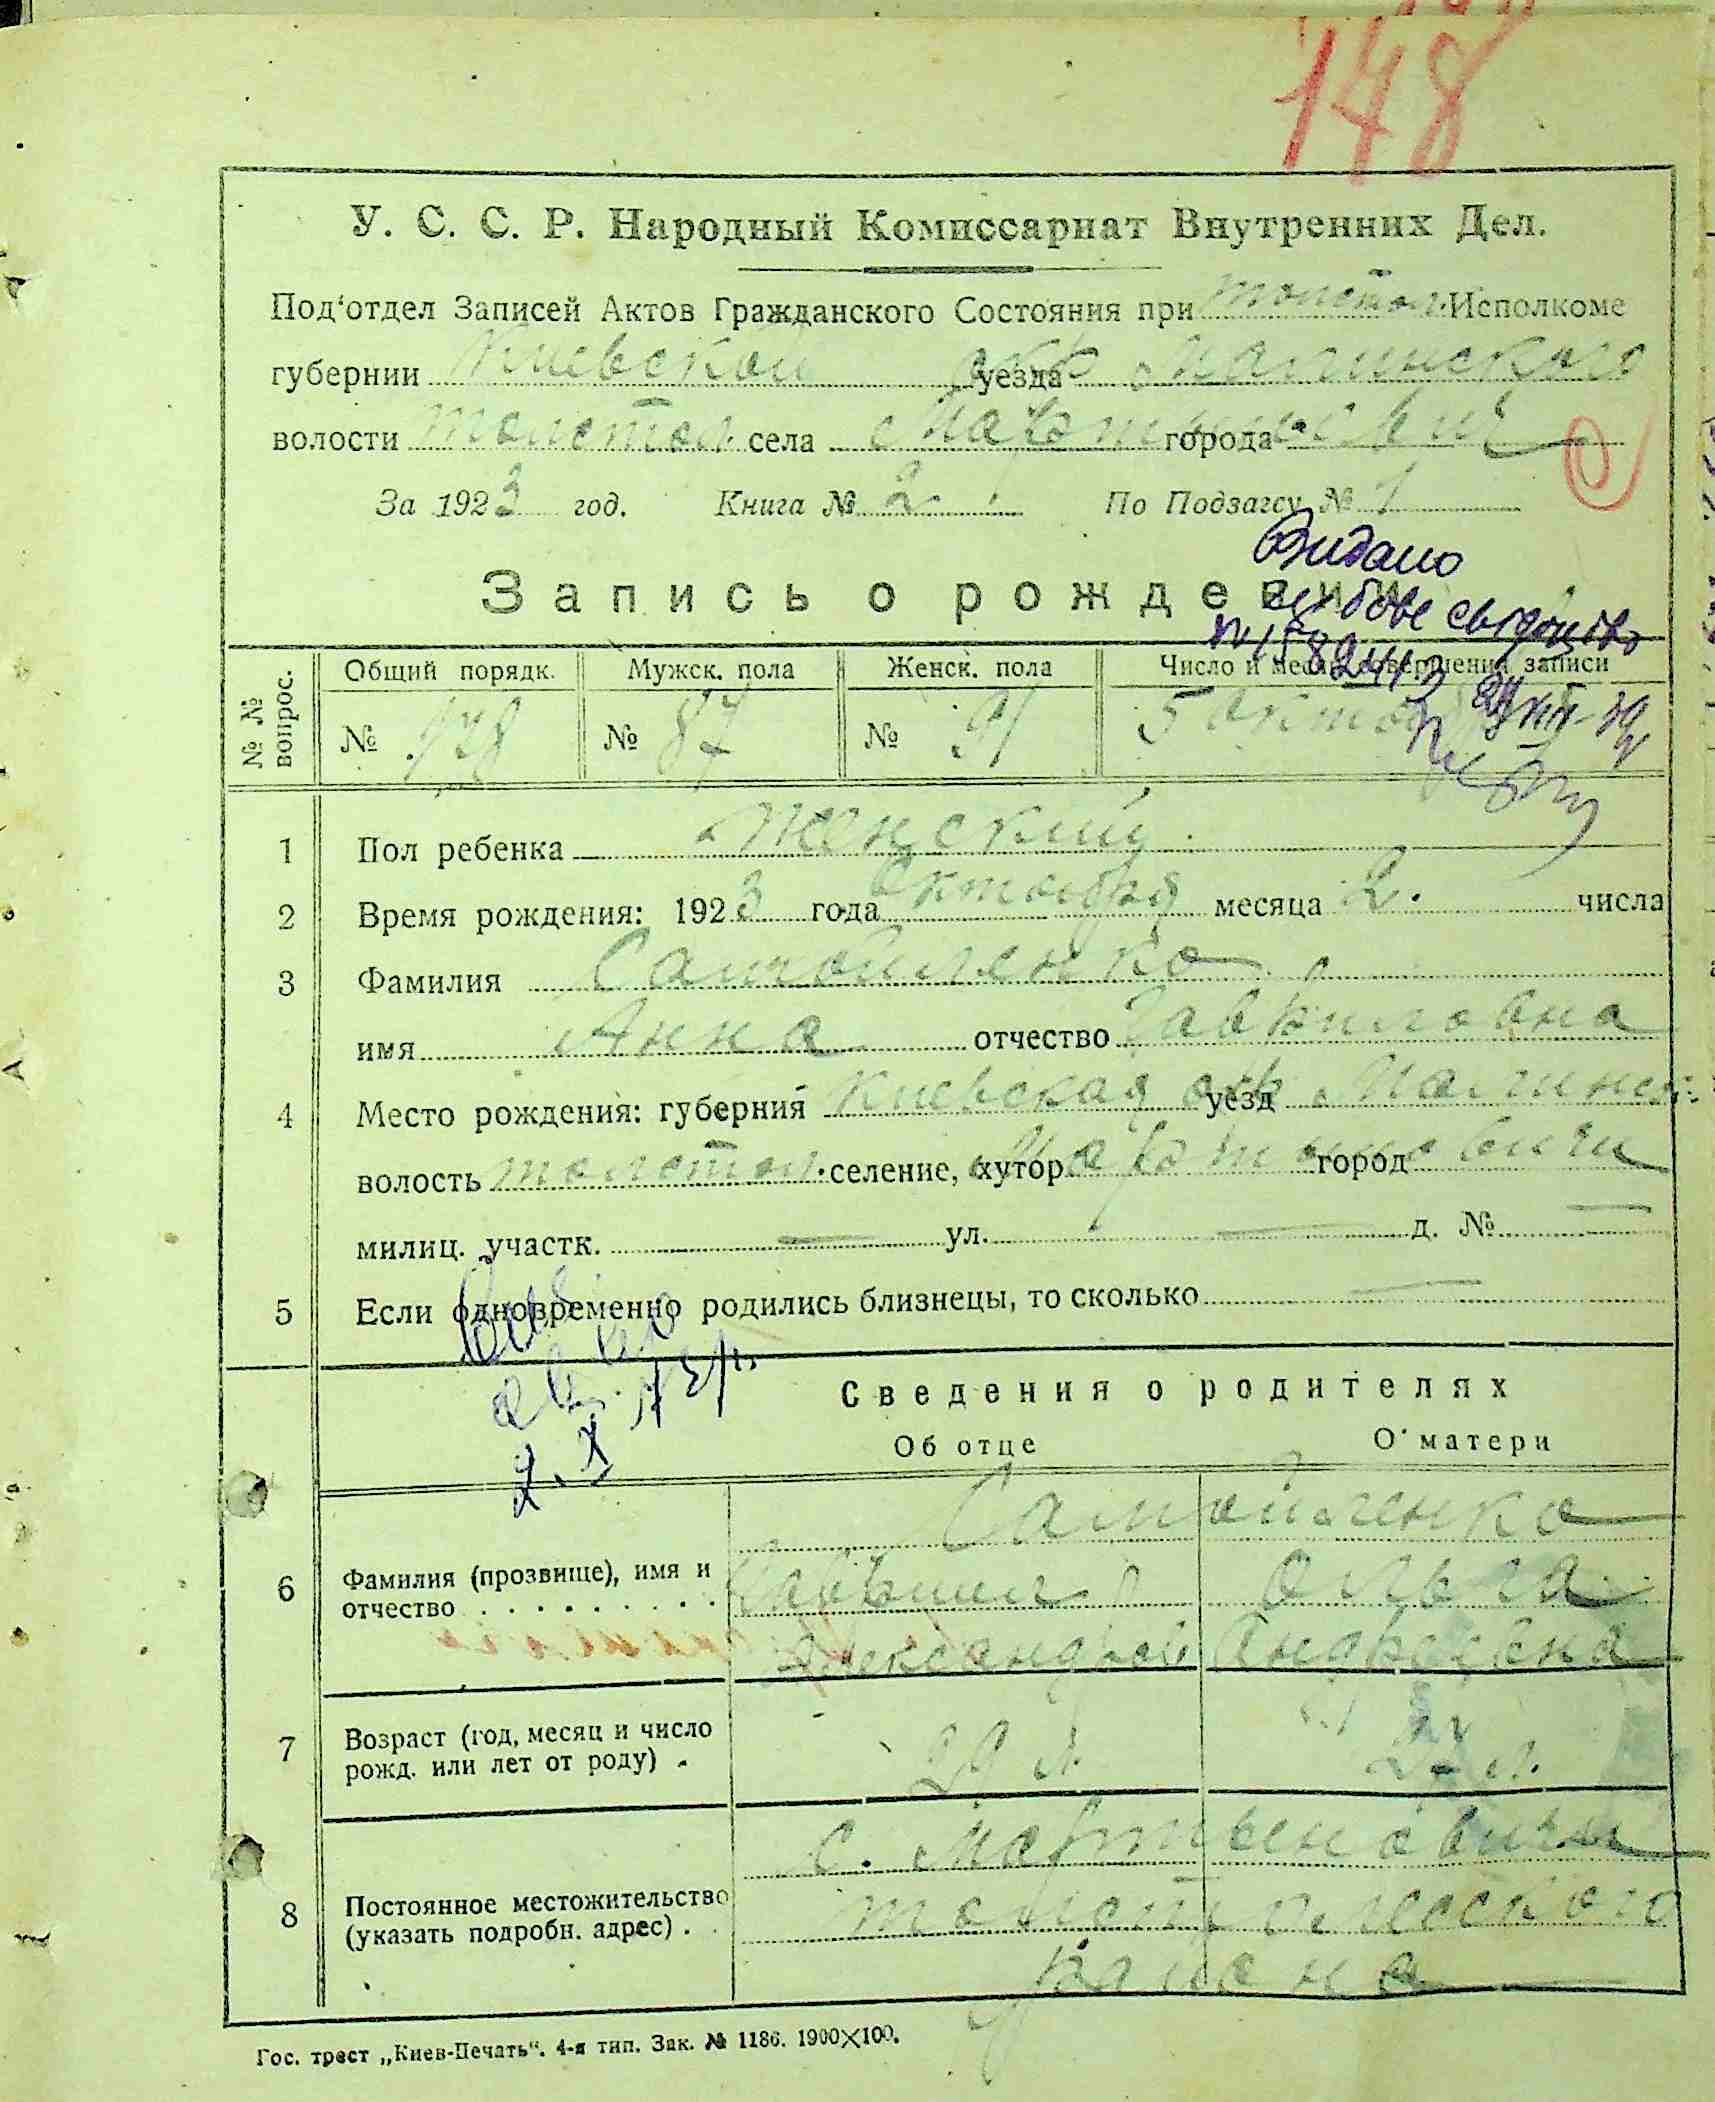 148
У. С. С. Р. Народный Комиссариат Внутренних Дел.
Под‘отдел Записей Актов Гражданского Состояния при Толстол. Исполкоме
губернии Киевской окр уезда Малинского
волости Толстол. села города
За 1923 год. Книга № 2 По Подзагсу № 1
Видано
Запись о рождении
№ № вопрос. Общий порядк. Мужск. пола Женск. пола Число и месяц совершения записи
№ 178 № 87 № 91 5 октоб
1 Пол ребенка Женский
2 Время рождения: 1923 года Октября месяца 2. числа
3 Фамилия Самойленко
имя Анна отчество Гавриловна
4 Место рождения: губерния Киевская окр уезд Малинск.
волость Толстол. селение, хутор Мартиновичи город
милиц. участк. — ул. — д. № —
5 Если одновременно родились близнецы, то сколько —
Сведения о родителях
Об отце О матери
Самойленко
6 Фамилия (прозвище), имя и отчество Гавриил Ольга
Александров Андреевна
7 Возраст (год, месяц и число рожд. или лет от роду) 29 л.
с. Мартыновичи
8 Постоянное местожительство (указать подробн. адрес)
района
Гос. трест „Киев-Печать“. 4-я тип. Зак. № 1186. 1900×100.